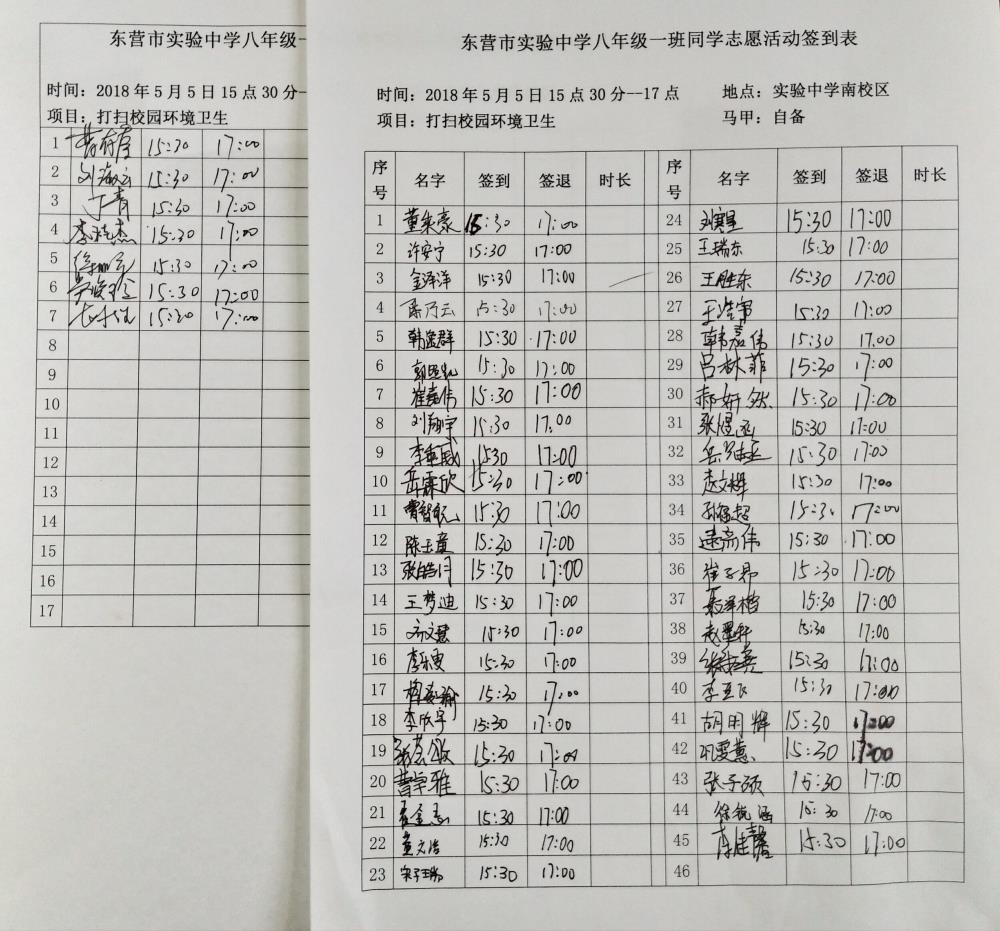 东营市实验中学八年级一
时间：2018年5月5日15点30分-
项目：打扫校园环境卫生
1 15:30 17:00
2 15:30 17:00
3 丁青 15:30 17:00
4 15:30 17:00
5 15:30 17:00
6 15:30 17:00
7 15:30 17:00
8
9
10
11
12
13
14
15
16
17
东营市实验中学八年级一班同学志愿活动签到表
时间：2018年5月5日15点30分--17点 地点：实验中学南校区
项目：打扫校园环境卫生 马甲：自备
序号 名字 签到 签退 时长 序号 名字 签到 签退 时长
1 15:30 17:00 24 15:30 17:00
2 许安宁 15:30 17:00 25 王瑞东 15:30 17:00
3 金泽洋 15:30 17:00 26 王胜东 15:30 17:00
4 15:30 17:00 27 15:30 17:00
5 韩逸群 15:30 17:00 28 韩嘉伟 15:30 17.00
6 15:30 17:00 29 吕林菲 15:30 17:00
7 崔嘉伟 15:30 17:00 30 郝妍然 15:30 17:00
8 刘翔宇 15:30 17.00 31 张煜函 15:30 17:00
9 李重威 1530 17:00 32 15:30 17:00
10 岳霖欣 15:30 17:00 33 赵文烨 15:30 17:00
11 15:30 17:00 34 15:30 17:00
12 陈玉童 15:30 17:00 35 15:30 17:00
13 张皓月 15:30 17:00 36 崔子昂 15:30 17:00
14 王梦迪 15:30 17:00 37 聂泽楷 15:30 17:00
15 齐文慧 15:30 17:00 38 赵墨轩 15:30 17:00
16 李乐雯 15:30 17:00 39 15:30 17:00
17 15:30 17:00 40 15:30 17:00
18 李欣宇 15:30 17:00 41 胡明辉 15:30 17:00
19 15:30 17:00 42 巩雯蕙 15:30 17:00
20 曹学雅 15:30 17:00 43 张子硕 15:30 17:00
21 15:30 17:00 44 徐锐涵 15:30 17:00
22 董文浩 15:30 17:00 45 李佳馨 15:30 17:00
23 宋子瑞 15:30 17:00 46